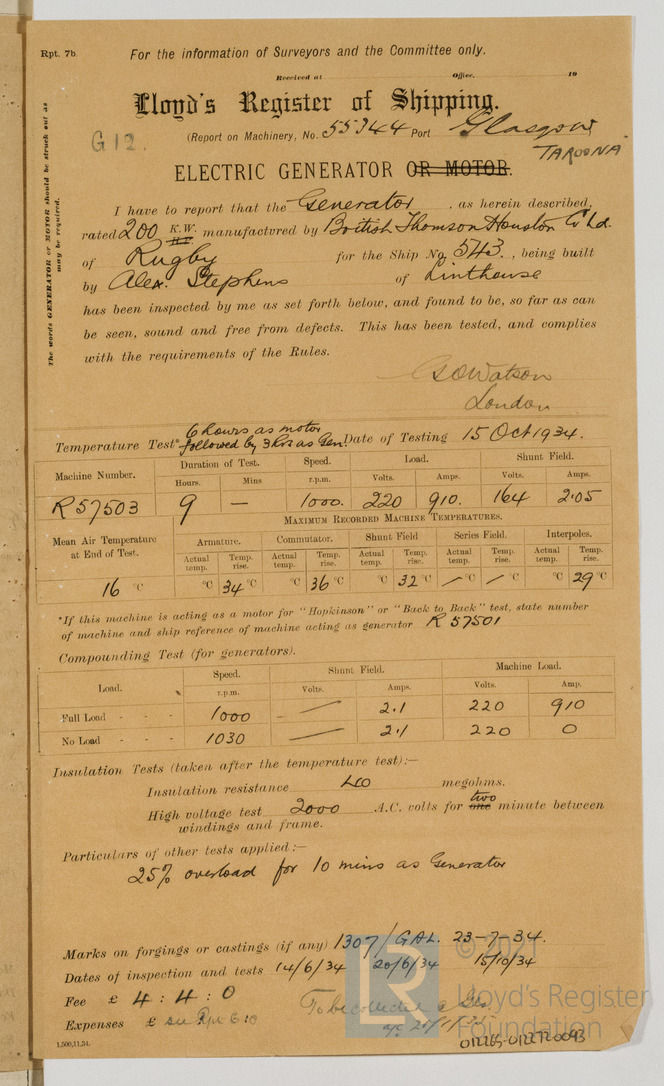 Rpt. 7b.
For the information of Surveyors and the Committee only.
Received at Office, 19
Lloyd's Register of Shipping.
G 12.
(Report on Machinery, No. 55344 Port Glasgow
TAROONA.
ELECTRIC GENERATOR OR MOTOR.
The words GENERATOR or MOTOR should be struck out as
may be required.
I have to report that the Generator, as herein described,
rated 200 K.W. manufactured by British Thomson Houston Co Ld.
of Rugby for the Ship No. 543., being built
by Alex. Stephens of Linthouse
has been inspected by me as set forth below, and found to be, so far as can
be seen, sound and free from defects. This has been tested, and complies
with the requirements of the Rules.
GO Watson
London
6 hours as motor
Temperature Test* followed by 3 hrs as Gen. Date of Testing 15 Oct 1934.
Machine Number. Duration of Test. Speed. Load. Shunt Field.
Hours. Mins r.p.m. Volts. Amps. Volts. Amps.
R57503 9 — 1000. 220 910. 164 2.05
MAXIMUM RECORDED MACHINE TEMPERATURES.
Mean Air Temperature at End of Test. Armature. Commutator. Shunt Field Series Field. Interpoles.
Actual temp. Temp. rise. Actual temp. Temp. rise. Actual temp. Temp. rise. Actual temp. Temp. rise. Actual temp. Temp. rise.
16 °C °C 34 °C °C 36 °C °C 32 °C / °C / °C °C 29 °C
*If this machine is acting as a motor for "Hopkinson" or "Back to Back" test, state number
of machine and ship reference of machine acting as generator R 57501
Compounding Test (for generators).
Load. Speed. Shunt Field. Machine Load.
r.p.m. Volts. Amps. Volts. Amp.
Full Load - - - 1000 — 2.1 220 910
No Load - - - 1030 — 2.1 220 0
Insulation Tests (taken after the temperature test):—
Insulation resistance 40 megohms.
High voltage test 2000 A.C. volts for one two minute between
windings and frame.
Particulars of other tests applied:—
25% overload for 10 mins as Generator
Marks on forgings or castings (if any) 1307/GAL. 23-7-34.
Dates of inspection and tests 14/6/34 20/6/34 15/10/34
Fee £ 4 : 4 : 0
To be collected
Expenses £
1,500,11,31.
© 2021
LR
Lloyd's Register
Foundation
012265-012272-0093